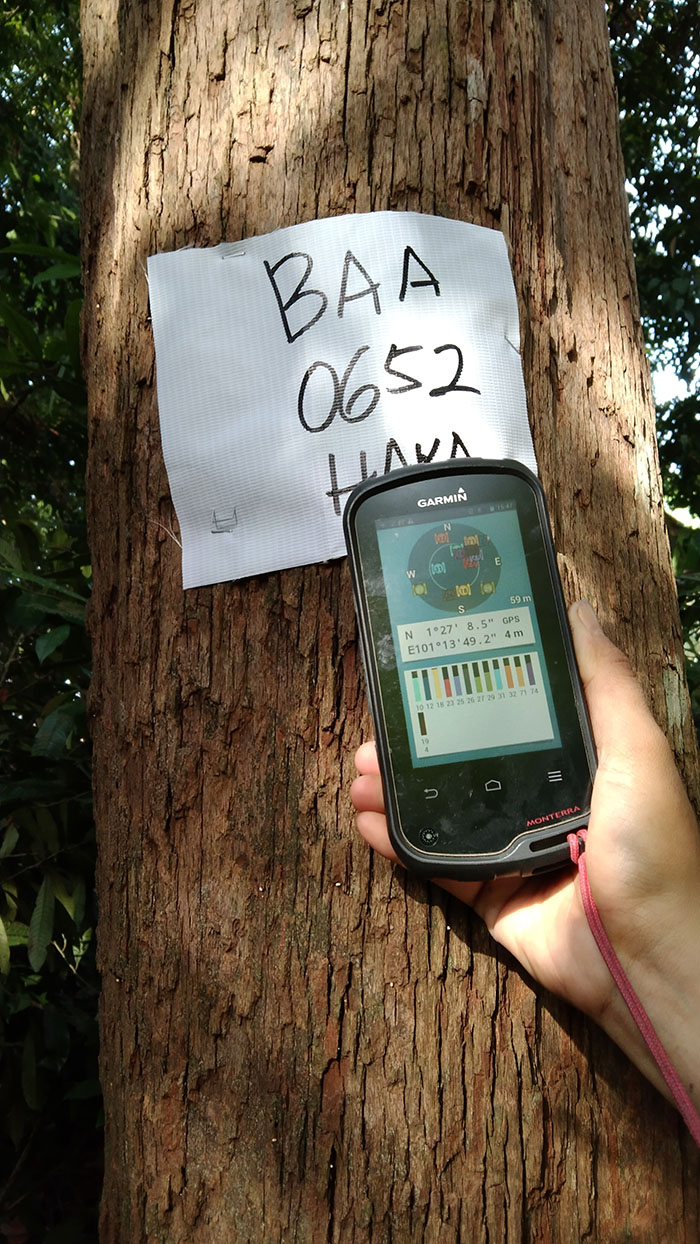 BAA
0652
HAKA
GARMIN
N
W
E
S
59 m
N 1°27' 8.5" GPS
E101°13'49.2" 4 m
10 12 18 23 25 26 27 29 31 32 71 74
19
4
MONTERRA